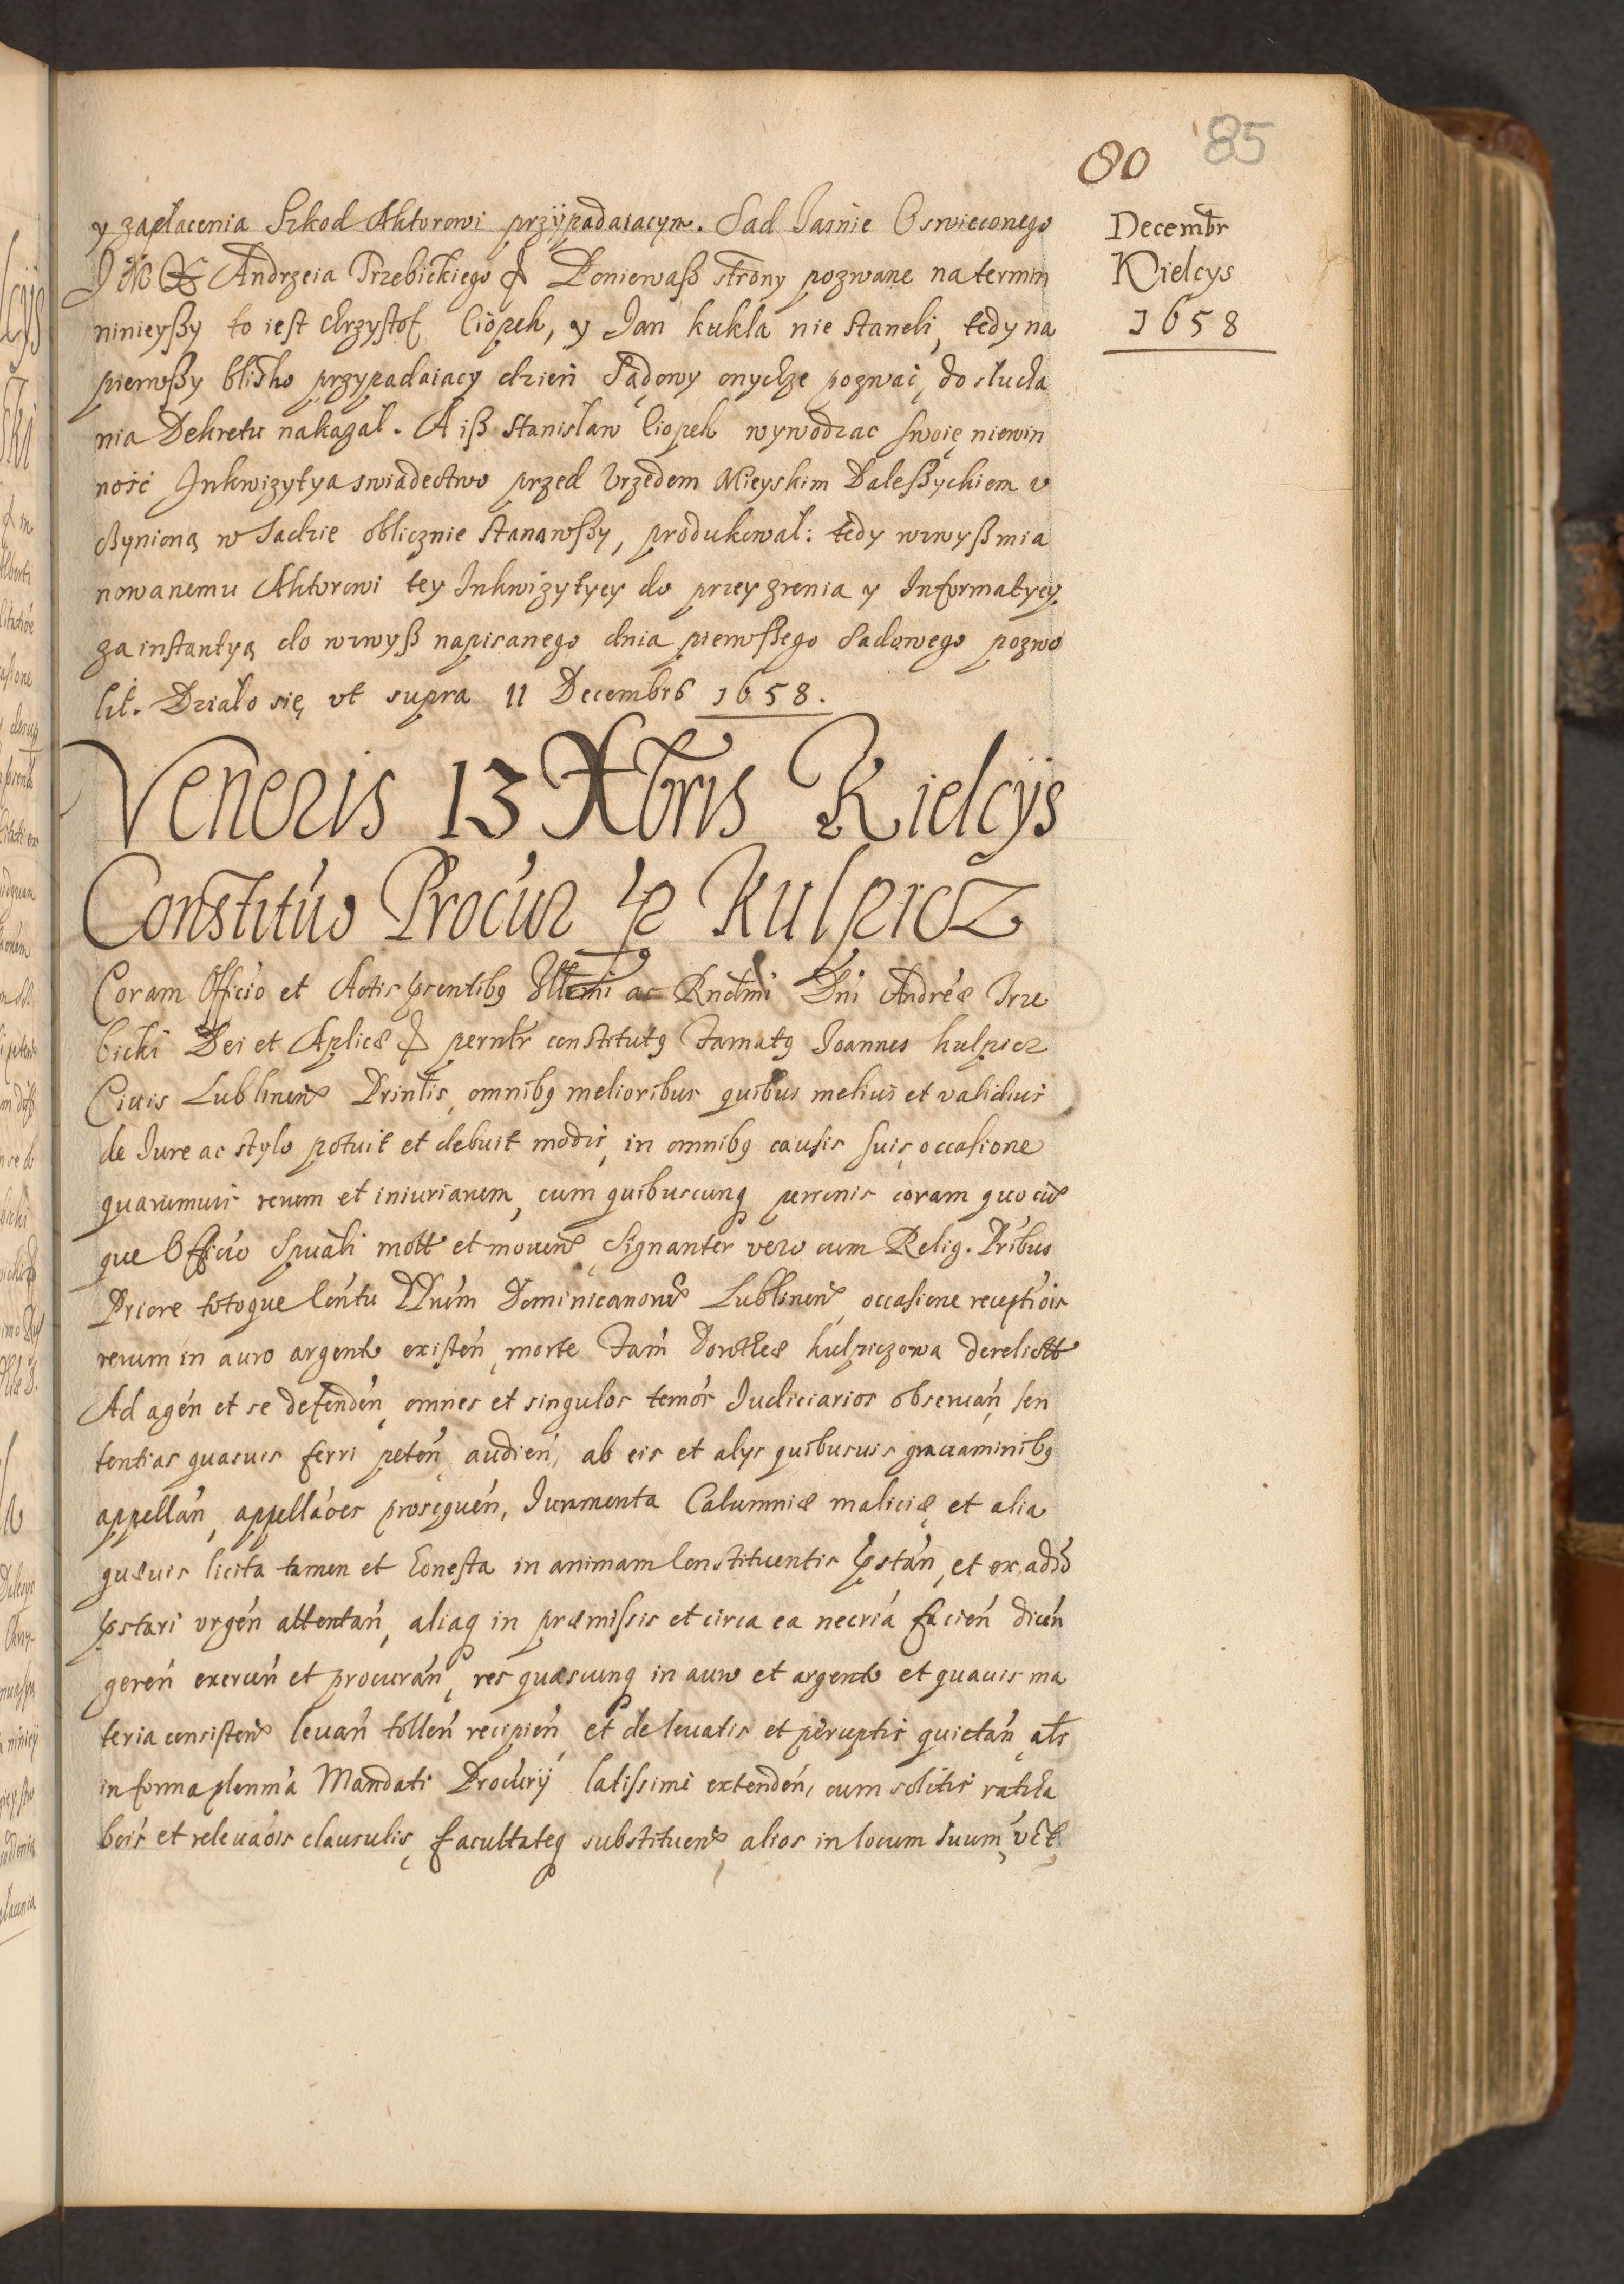 80 85
Decembr
Kielcys
1658
y zapłacenia Szkod Aktorowi przÿpadaiacym. Sad Jasnie Oswieconego
Andrzeia Trzebickiego & Poniewaß strony pozwane na termin
ninieyßy to iest Chrzysztof Ciopek, y Jan kukla nie staneli, tedy na
pierwßy blisko przypadaiacy dzień Sądowy onychze pozwać, do słucha
nia Dekretu nakazał. A iß Stanisław Ciopek wywodzac swoię niewin
ność Inkwizytya swiadectwo przed Vrzędem Mieyskim Daleßyckiem v
cżynioną w Sadzie oblicznie stanąwßy, produkował: tedy wzwyß mia
nowanemu Aktorowi tey Inkwizytyey do przeyzrenia y Informatyey
za instantyą do wzwyß napisanego dnia pierwßego Sadowego pozwo
lił. Działo się vt supra 11 Decembrs 1658.
Veneris 13 Xbris Kielcÿs
Constitúo Procur p Kulpicz
Coram Officio et Actis pſentibꝫ Illmi ac Rndmi Dni Andreæ Trze
bicki Dei et Aplicæ & pernlr constitutꝫ Famatꝫ Joannes kulpicz
Ciuis Lublinen Prinlis, omnibꝫ melioribus quibus melius et validius
de Jure ac stylo potuit et debuit modis, in omnibꝫ causis suis occasione
quarumuis rerum et iniuriarum, cum quibuscunq personis coram quocu
que Officio Spuali mott et mouen, signanter vero cum Relig. Pribus
Priore totoque Contu PPrum Dominicanorum Lublinen, occasione receptiois
rerum in auro argento existen, morte Fam Dorotheæ kulpiczowa derelictt
Ad agen et se defenden, omnes et singulos temos Judiciarios obseruan, sen
tentias quasuis ferri peten, audien, ab eis et alys quibusuis grauaminibꝫ
appellan, appellaoes prosequen, Iuramenta Calumniæ maliciæ, et alia
quæuis licita tamen et honesta in animam Constituentis pstan, et ex ado
pstari vrgen attentan, aliaq in præmissis et circa ea necria facien dicen
geren exercen et procuran, res quascunq in auro et argento et quauis ma
teria consisten leuan tollen recipien, et de leuatis et perceptis quietan, als
in forma plenma Mandati Procurÿ latissimi extenden, cum solitis ratiha
bois et releuaois clausulis, facultateq substituen alios in locum suum, vct